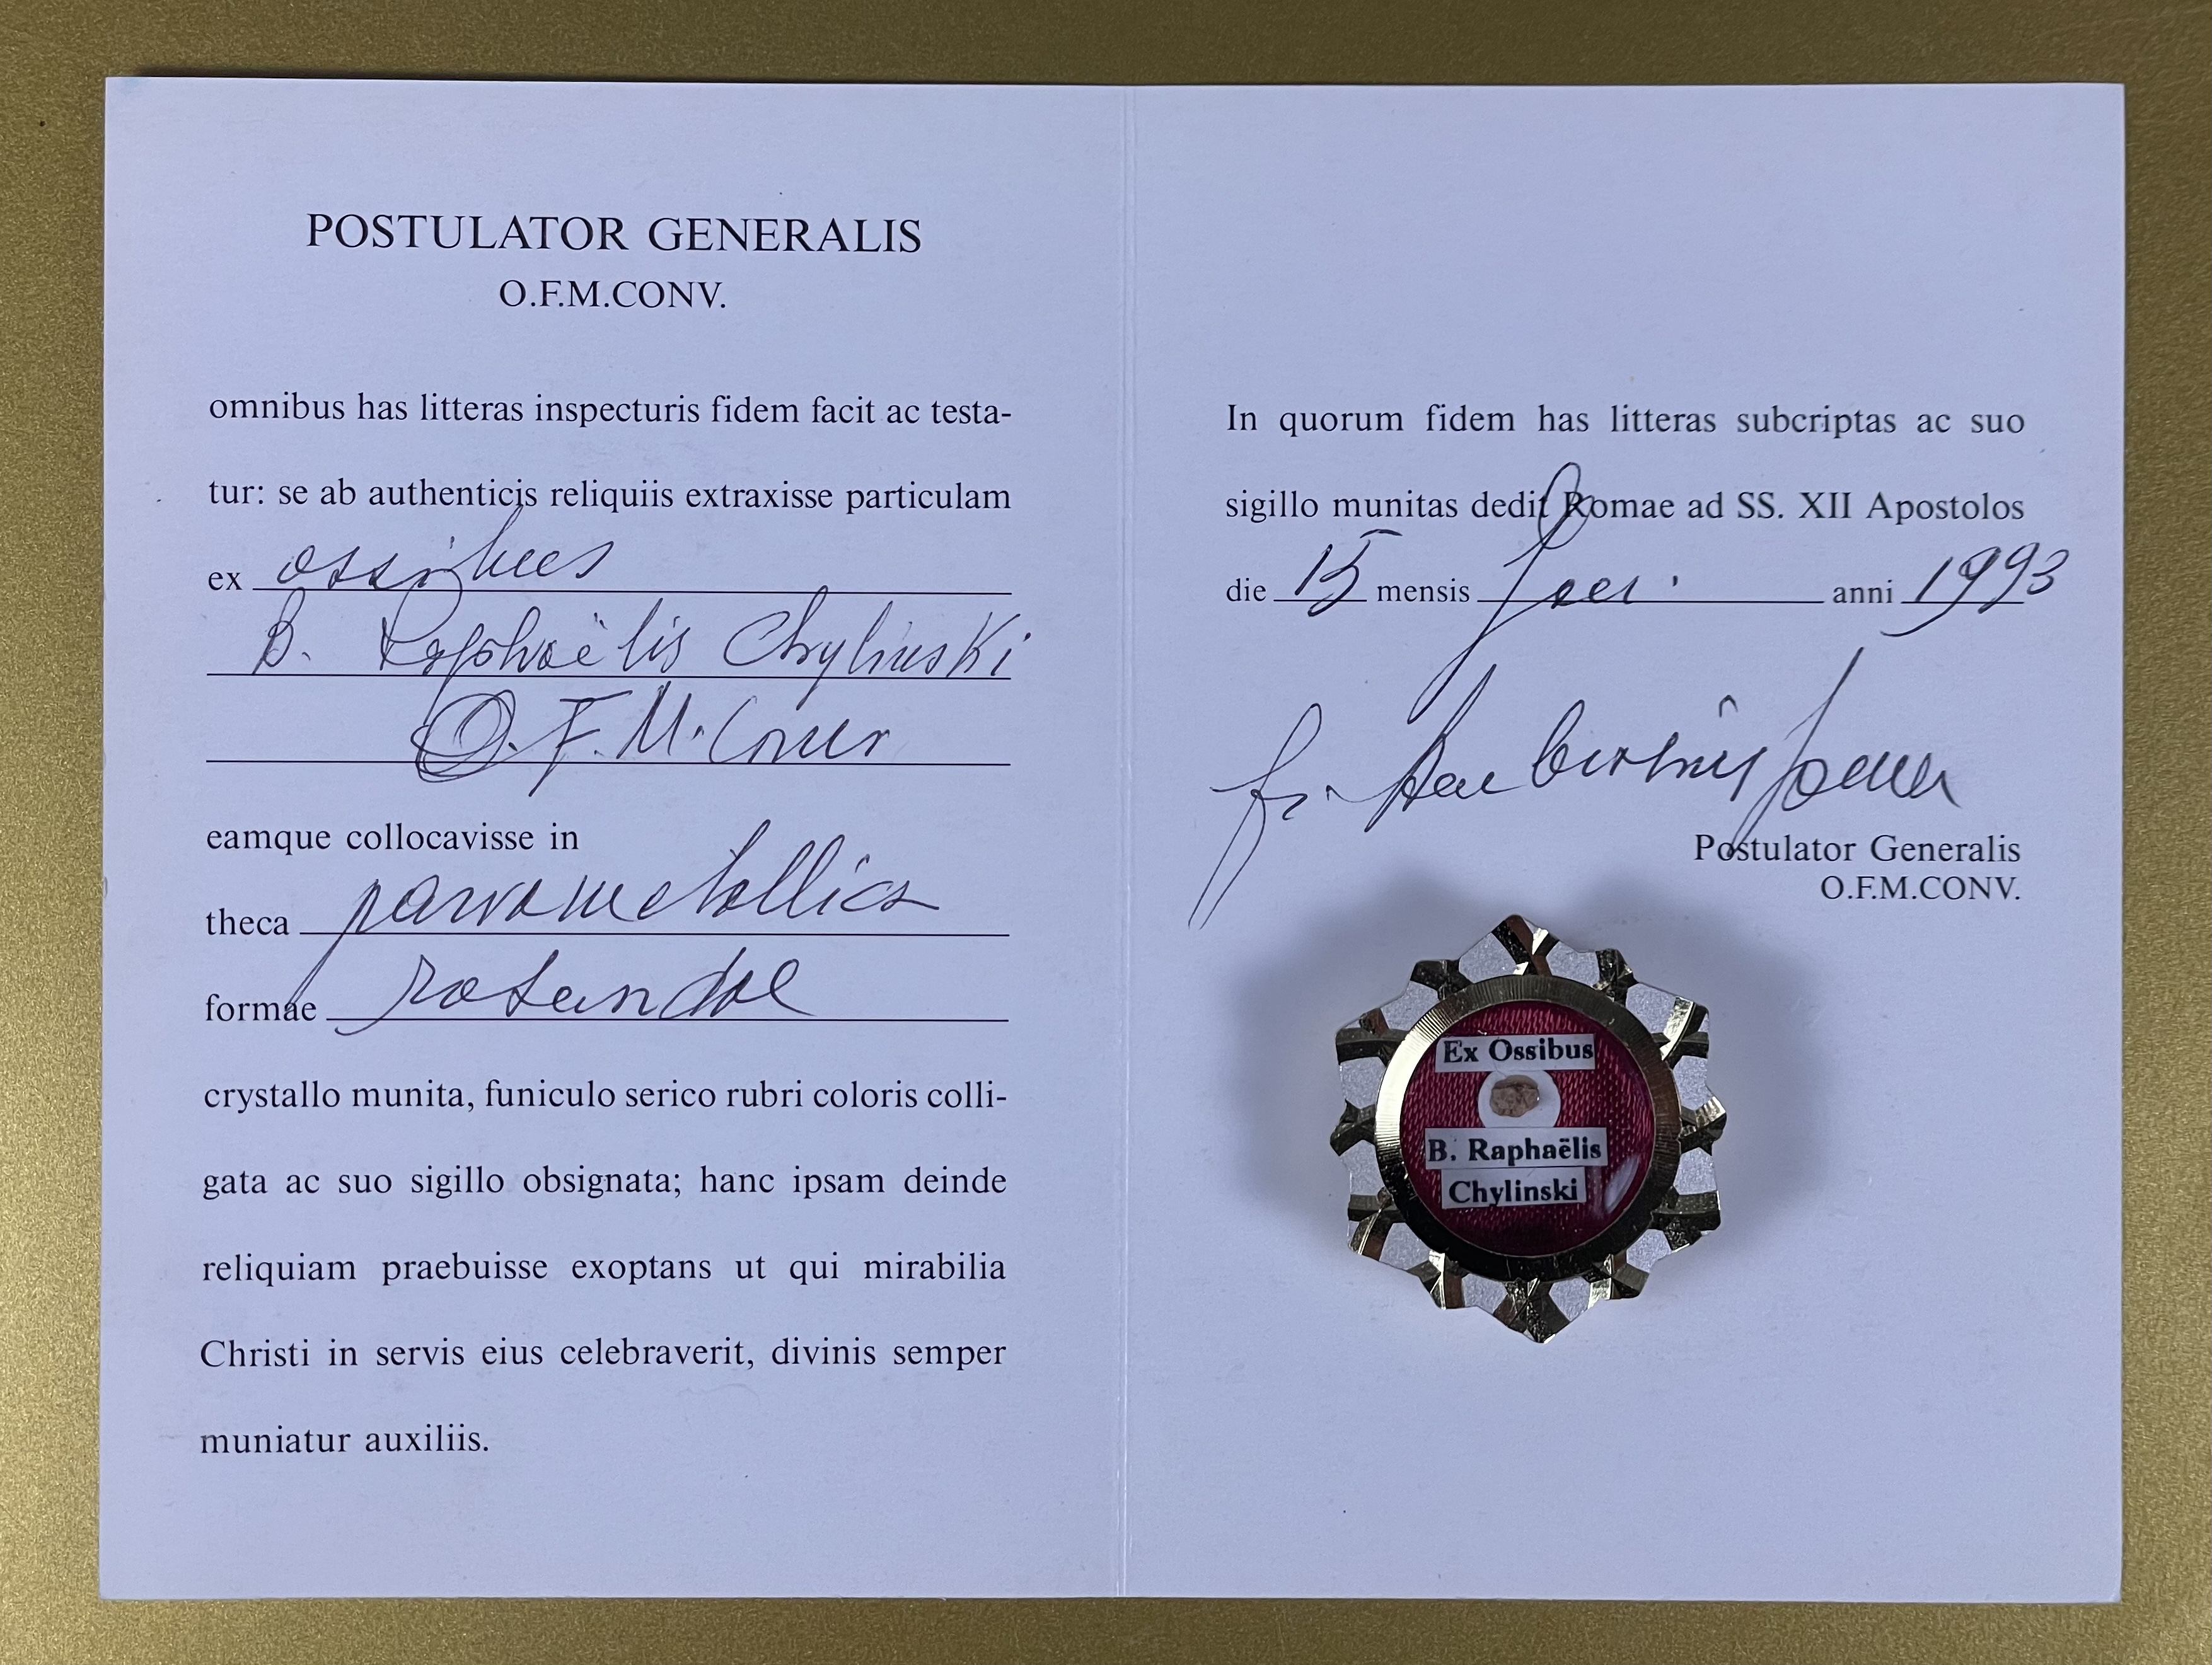 POSTULATOR GENERALIS
O.F.M.CONV.
omnibus has litteras inspecturis fidem facit ac testa-
tur: se ab authenticis reliquiis extraxisse particulam
ex ossibus
B. Raphaëlis Chylinski
O.F.M.Conv
eamque collocavisse in
theca parva metallica
formae rotundae
crystallo munita, funiculo serico rubri coloris colli-
gata ac suo sigillo obsignata; hanc ipsam deinde
reliquiam praebuisse exoptans ut qui mirabilia
Christi in servis eius celebraverit, divinis semper
muniatur auxiliis.
In quorum fidem has litteras subcriptas ac suo
sigillo munitas dedit Romae ad SS. XII Apostolos
die 15 mensis anni 1993
fr.
Postulator Generalis
O.F.M.CONV.
Ex Ossibus
B. Raphaëlis
Chylinski